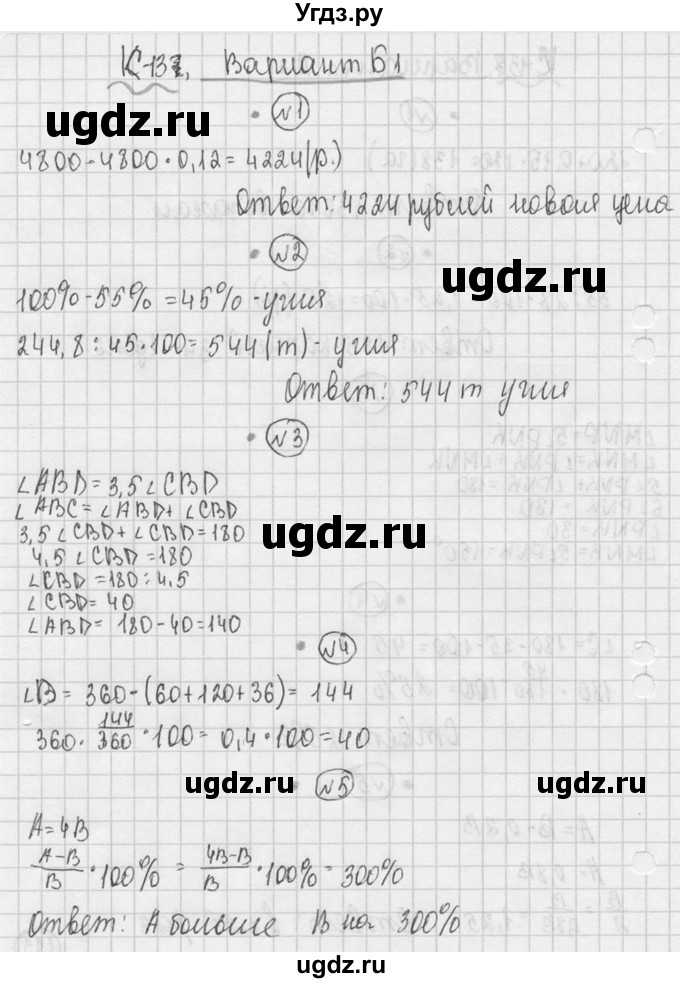 Угдз.ру
К-13, Вариант Б1
№1
4800-4800·0,12=4224(р.)
Ответ: 4224 рублей новая цена
№2
100%-55%=45%-угля
244,8:45·100=544(т)-угля
Ответ: 544т угля
№3
∠ABD=3,5∠CBD
∠ABC=∠ABD+∠CBD
3,5∠CBD+∠CBD=180
4,5∠CBD=180
∠CBD=180:4,5
∠CBD=40
∠ABD=180-40=140
№4
∠B=360-(60+120+36)=144
360·144/360·100=0,4·100=40
№5
A=4B
(A-B)/B·100%=(4B-B)/B·100%=300%
Ответ: А больше В на 300%
ugdz.ru
ugdz.ru
ugdz.ru
ugdz.ru
ugdz.ru
ugdz.ru
ugdz.ru
ugdz.ru